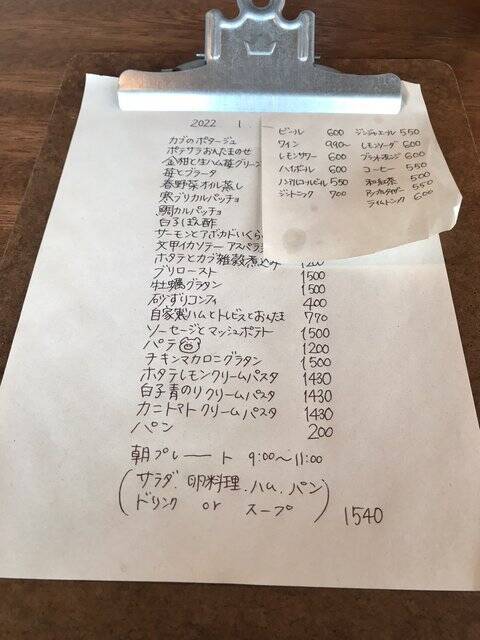 2022 1
カブのポタージュ
ポテサラおんたまのせ
金柑と生ハム苺グリーン
苺とブラータ
春野菜オイル蒸し
寒ブリカルパッチョ
鯛カルパッチョ
白子ぽん酢
サーモンとアボカドいくら
文甲イカソテー アスパラ
ホタテとカブ雑穀煮込み 1200
ブリロースト 1500
牡蠣グラタン 1500
砂ずりコンフィ 400
自家製ハムとトレビスとおんたま 770
ソーセージとマッシュポテト 1500
パテ 1200
チキンマカロニグラタン 1500
ホタテレモンクリームパスタ 1430
白子青のりクリームパスタ 1430
カニトマトクリームパスタ 1430
パン 200
朝プレート 9:00〜11:00
(サラダ、卵料理、ハム、パン
ドリンク or スープ) 1540
ビール 600
ワイン 990〜
レモンサワー 600
ハイボール 600
ノンアルコールビール 550
ジントニック 700
ジンジャエール 550
レモンソーダ 600
ブラッドオレンジ 600
コーヒー 550
和紅茶 500
アップルタイザー 550
ライムトニック 600